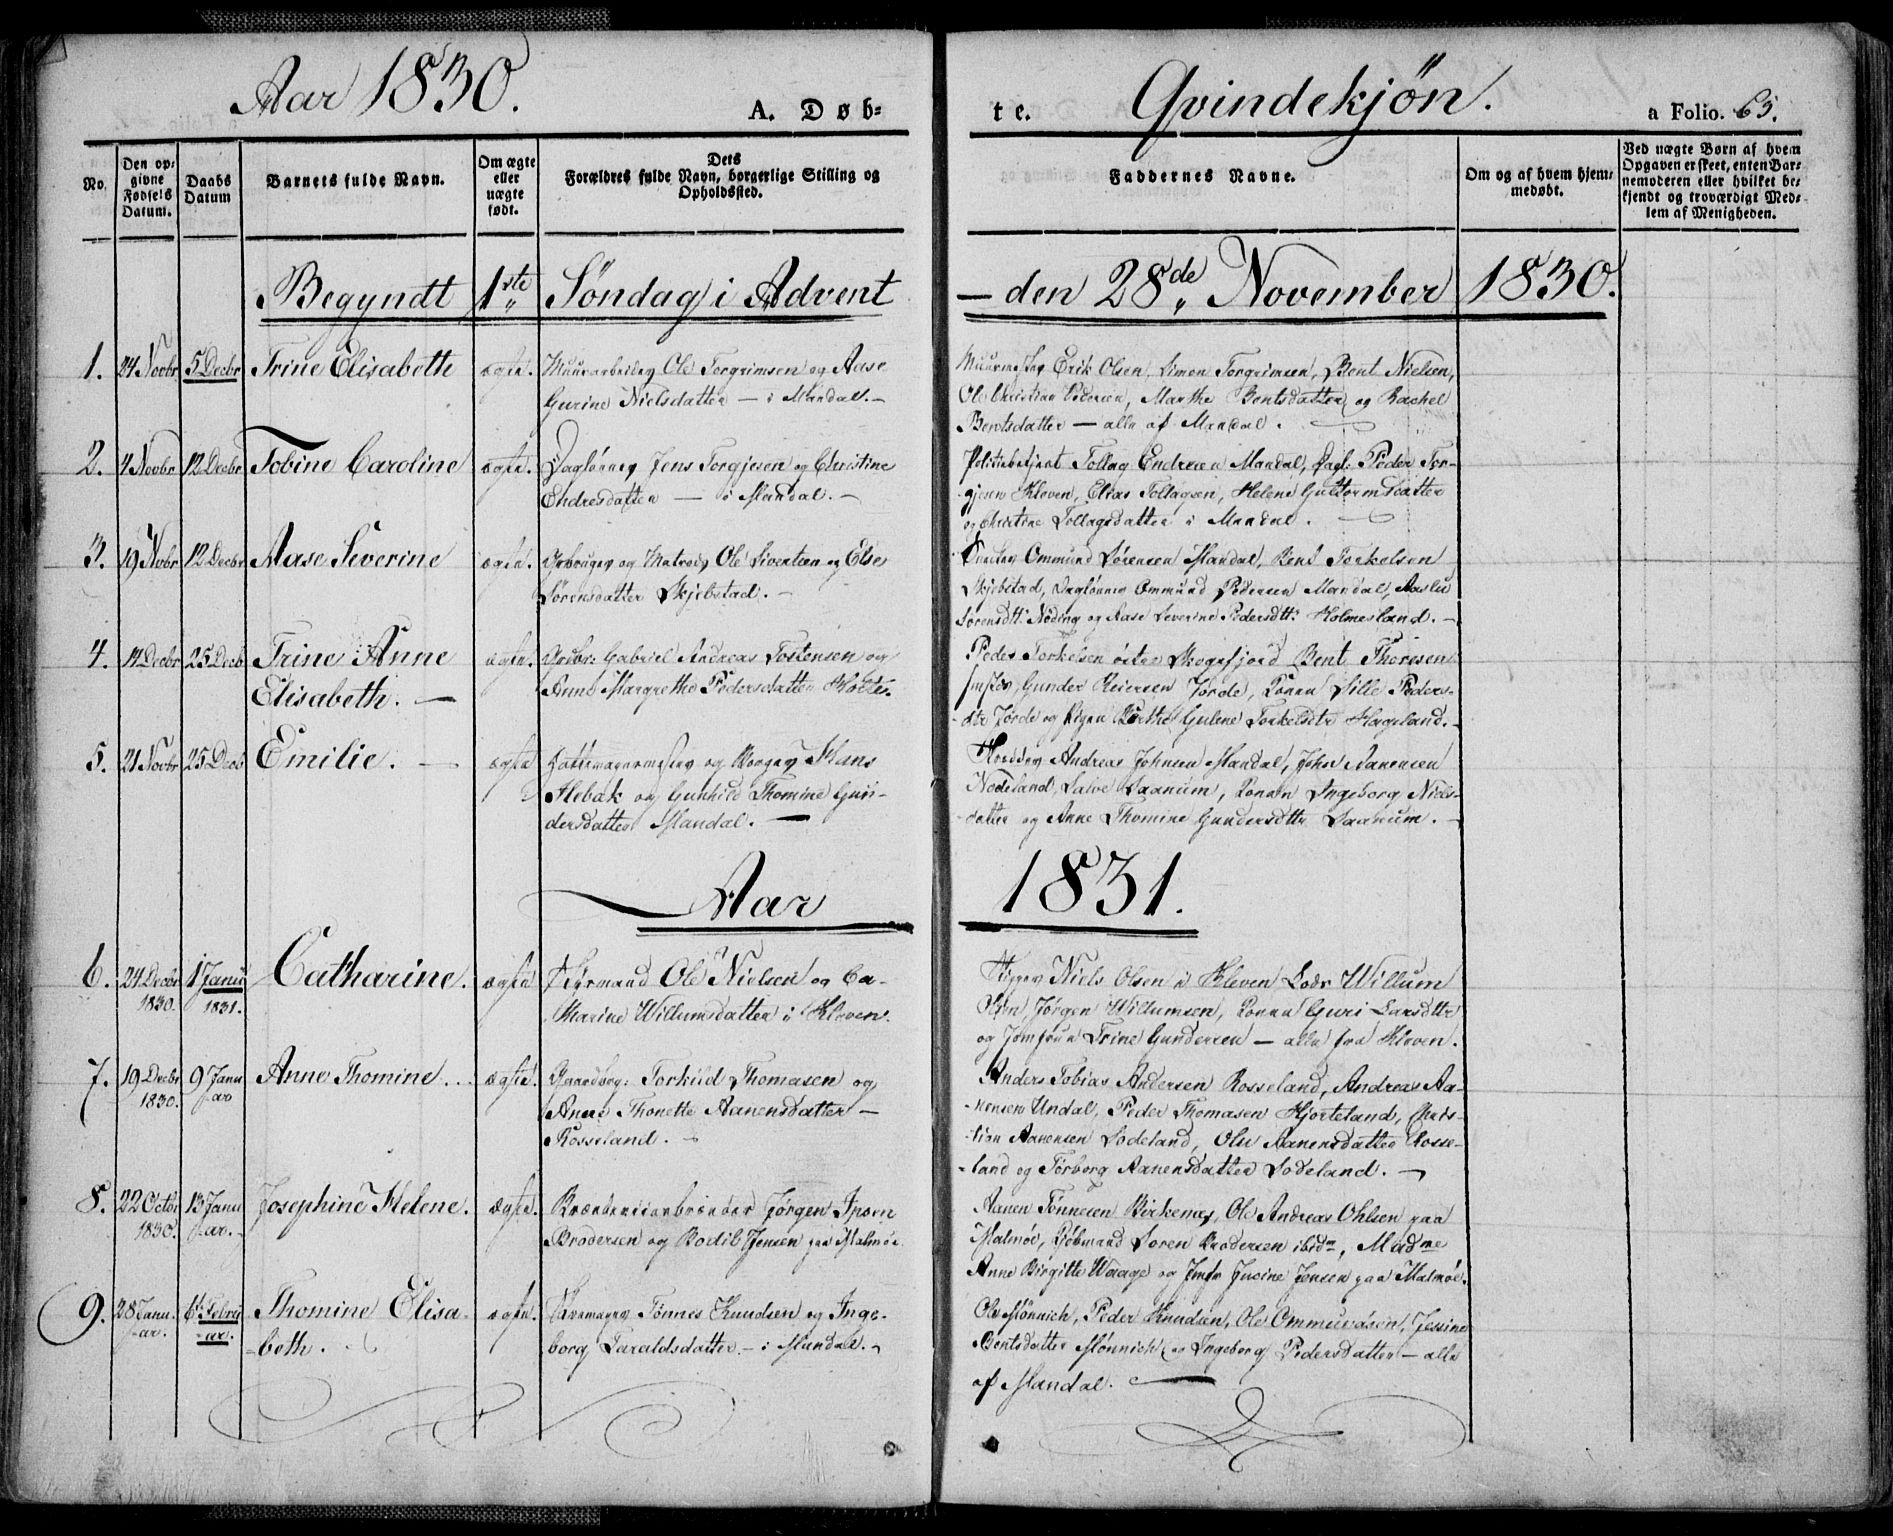 Aar 1830.
A. Døb=
te.
Qvindekjøn.
a Folio. 65.
No.
Den op=
givne
Fødsels
Datum.
Daabs
Datum
Barnets fulde Navn.
Om ægte
eller
uægte
født.
Dets
Forældres fulde Navn, borgerlige Stilling og
Opholdssted.
Faddernes Navne.
Om og af hvem hjem=
medøbt.
Ved uægte Børn af hvem
Opgaven er skeet, enten Bar=
nemoderen eller hvilket be=
kjendt og troværdigt Med=
lem af Menigheden.
Begyndt 1ste Søndag i Advent
— den 28de November 1830.
1. 24 Novbr 5 Decbr Trine Elisabeth ægte. Muurarbeider Ole Torgrimsen og Aase
Gurine Nielsdatter — i Mandal. —
Muurmester Erik Olsen, Simon Torgrimsen, Bent Nielsen,
Ole Christian Pedersen, Marthe Bentsdatter og Rachel
Bentsdatter — alle af Mandal.
2. 4 Novbr 12 Decbr Tobine Caroline ægte. Dagløner Jens Torgjesen og Christine
Endresdatter — i Mandal. —
Politiebetjent Tollag Endresen Mandal, Dagl: Peder Tor-
gjesen Kleven, Elias Tollagsen, Helene Guttormsdatter
og Christine Tollagsdatter i Mandal.
3. 19 Novbr 12 Decbr Aase Severine ægte. Jorbruger og Matros Ole Sivertsen og Else
Sørensdatter Skjebstad. —
Ommund Sørensen Mandal, Bent Torkelsen
Skjebstad, Dagløner Ommund Pedersen Mandal,
Sorensdtr: Nøding og Aase Severine Pedersdtr: Holmesland. —
4. 14 Decbr 25 Decb Trine Anne
Elisabeth. —
ægte. Jorbr: Gabriel Andreas Tostensen og
Anne Margrethe Pedersdatter Holte.
Peder Torkelsen østre Skogsfjord Bent Thoresen
Gunder Reiersen Jørde, Konen Sille Peders-
dtr Jørde og Pigen Gulene Torkelsdtr Hageland. —
5. 21 Novbr 25 Decb Emilie. — ægte Pottemagermester og Borger Hans
Flebak og Gunhild Thomine Gun-
dersdatter Mandal. —
Andreas Johnsen Mandal, John Aanensen
Nodeland, Salve Saanum, Konen Ingeborg Niels-
datter og Anne Thomine Gundersdtr Saanum. —
Aar
1831.
6. 24 Decbr
1830.
1 Janu
1831.
Catharine. ægte Styrmand Ole Nielsen og Ca-
tharine Willumsdatter i Kleven.
Niels Olsen i Kleven Lods Willum
Jørgen Willumsen, Konen Guri Larsdtr
og Jomfrue Trine Gundersen — alle fra Kleven.
7. 19 Decbr
1830.
9 Janu
ar
Anne Thomine. ægte. Gaardbrg: Torkild Thomasen og
Anne Thonette Aanensdatter —
Rosseland. —
Anders Tobias Andersen Rosseland, Andreas Aa-
nensen Undal, Peder Thomasen Hjorteland, Chris-
tian Aanensen Lodeland, Olu Aanensdatter Rosse-
land og Torborg Aanensdatter Lodeland. —
8. 22 Octbr
1830.
13 Janu
ar.
Josephine Helene. ægte. Brændeviinbrænder Jørgen Ipsen
Brodersen og Bodil Jensen paa Malmøe
Aanen Tønnesen Birkenæs, Ole Andreas Ohlsen paa
Malmøe, Kjøbmand Soren Brodersen ibidm, Madme
Anne Birgitte Waage og Jmfr Jusine Jensen paa Malmøe.
9. 28 Janu-
ar.
6te Febru
ar.
Thomine Elisa-
beth.
ægte. Skomager Tønnes Knudsen og Inge-
borg Taraldsdatter — i Mandal. —
Ole Mønnich, Peder Knudsen, Ole Ommundsen, Jessine
Bentsdatter Mønnich og Ingeborg Pedersdatter — alle
af Mandal. —